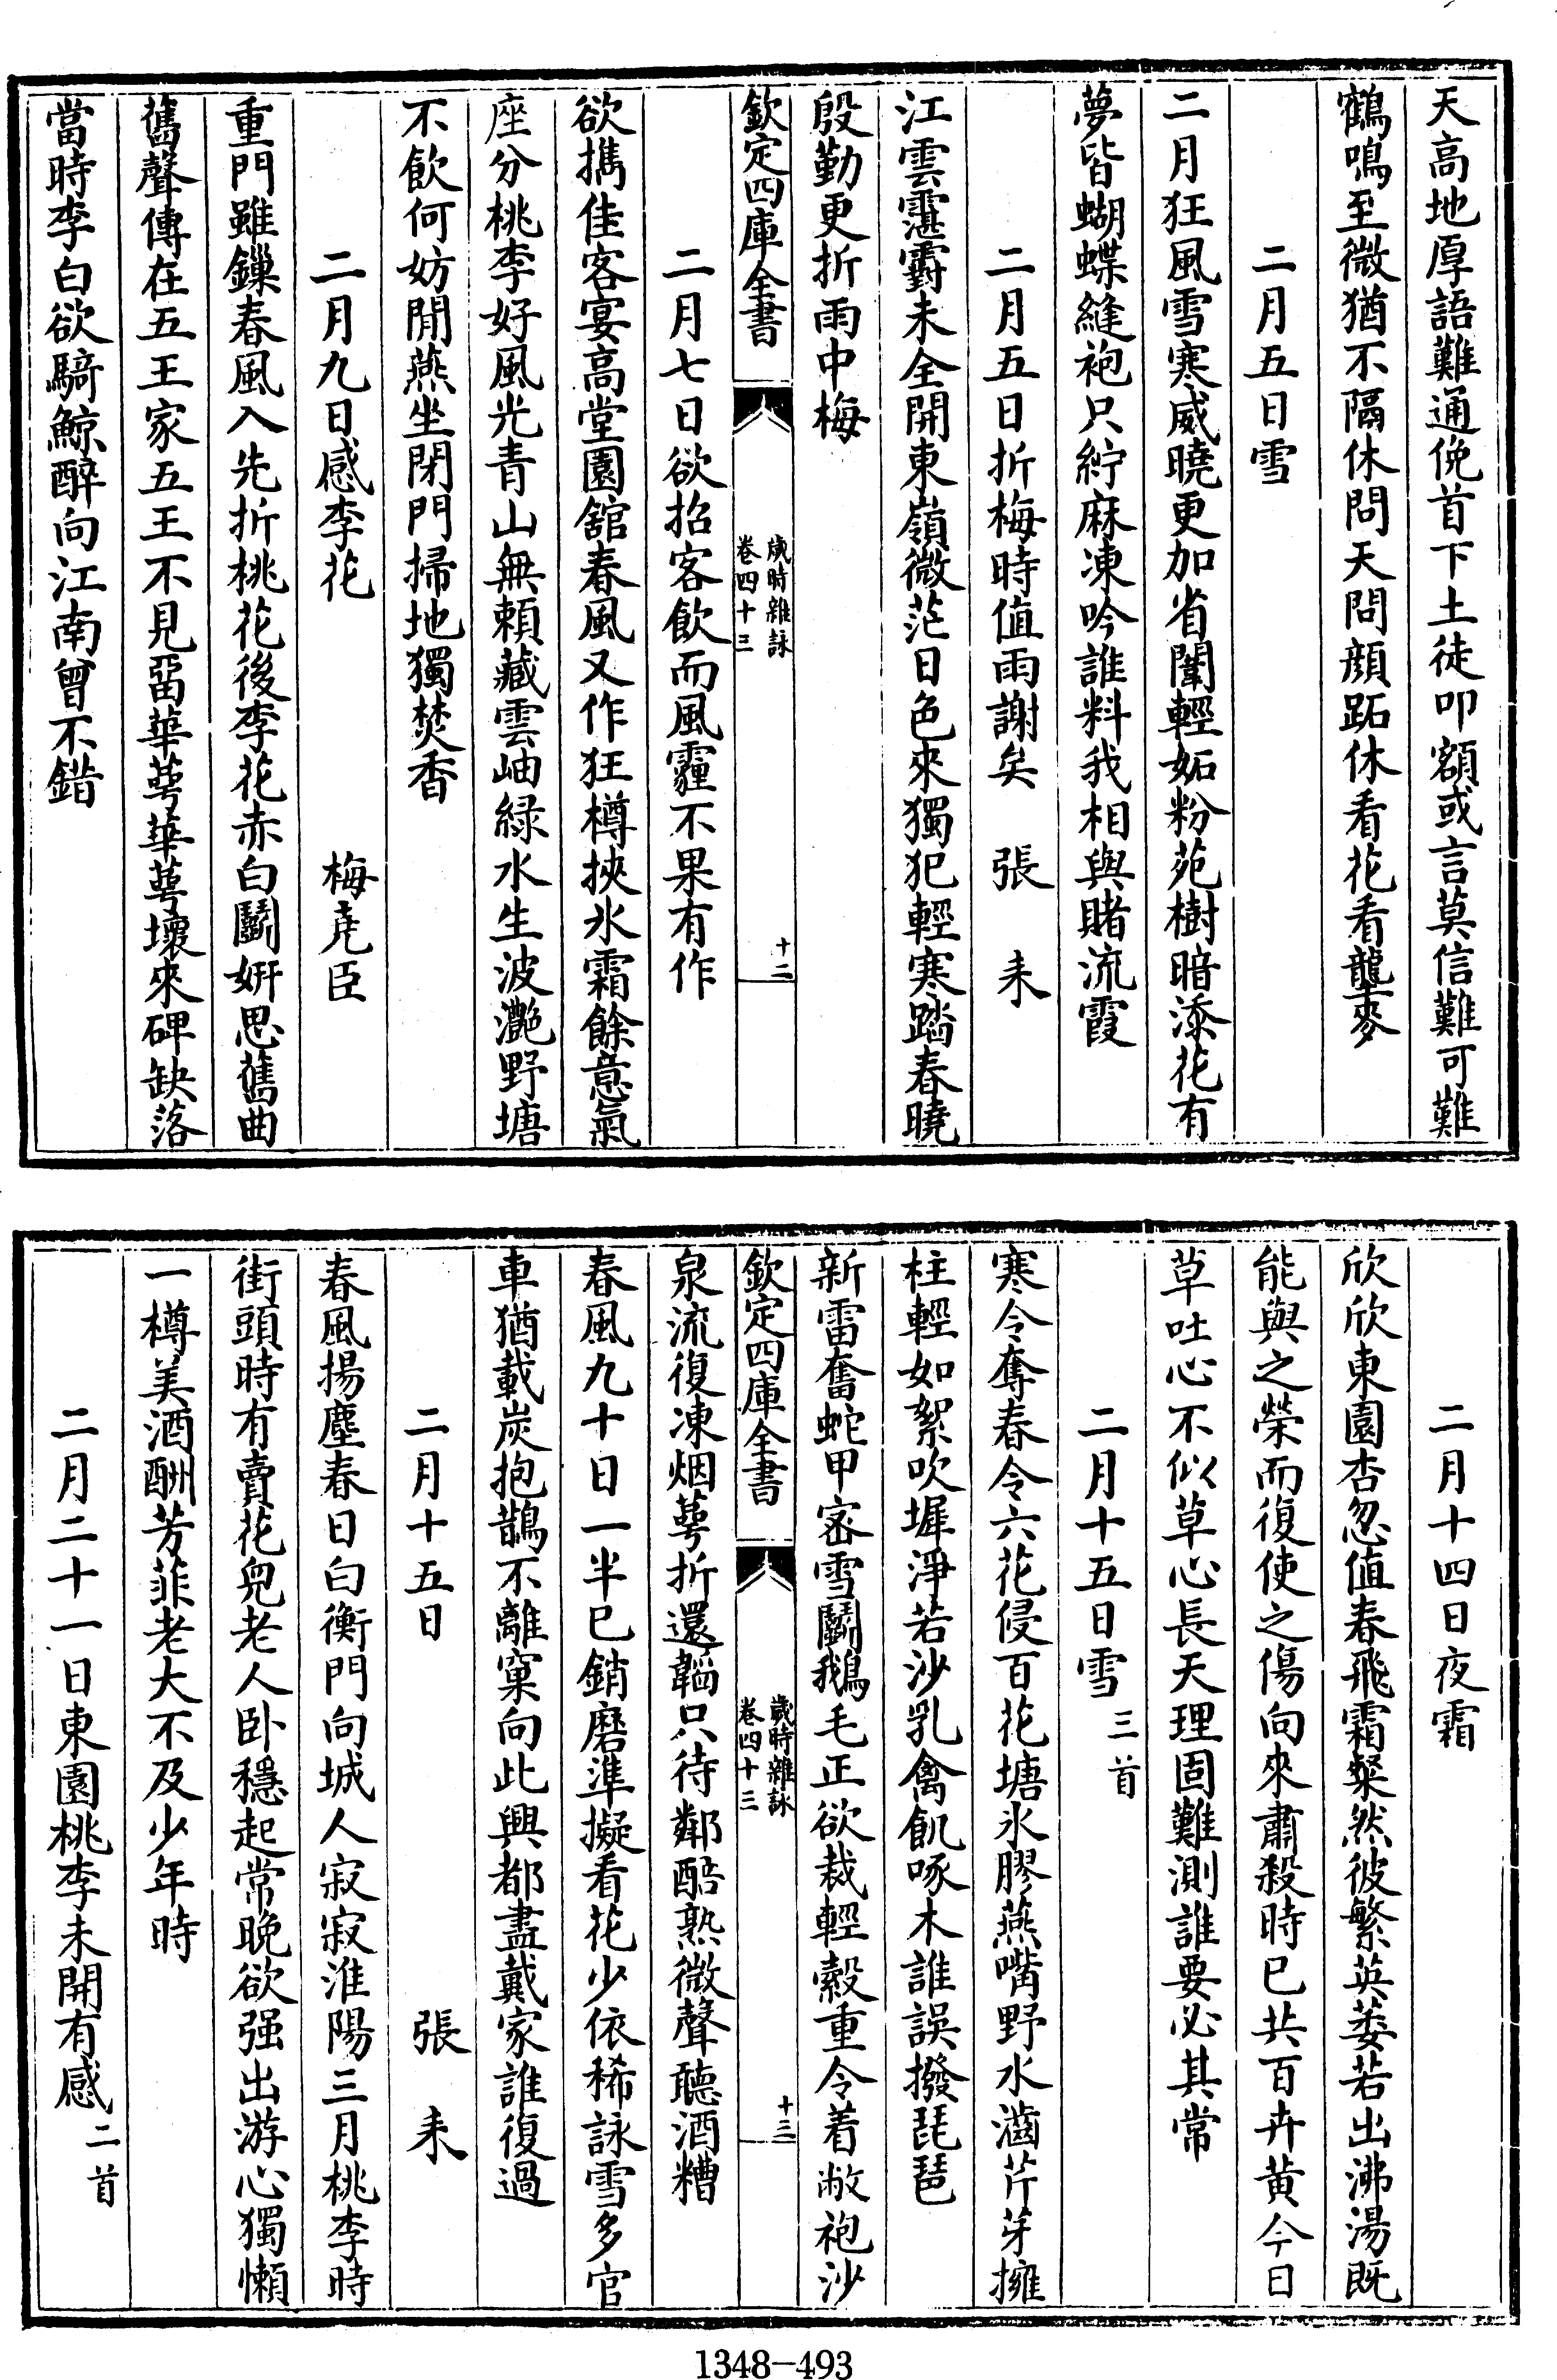 天高地厚語難通俛首下土徒叩額或言莫信難可難
鶴鳴至微猶不隔休問天問顔跖休看花看龍麥
二月五日雪
二月狂風雪寒威曉更加省闈輕妬粉苑樹暗添花有
夢皆蝴蝶縫袍只紵麻凍吟誰料我相與賭流霞
二月五日折梅時值雨謝矣 張耒
江雲霮䨴未全開東嶺微茫日色來獨犯輕寒踏春曉
殷勤更折雨中梅
欽定四庫全書
歲時雜詠
卷四十三
十二
二月七日欲招客飲而風霾不果有作
欲携佳客宴高堂園舘春風又作狂樽挾氷霜餘意氣
座分桃李好風光青山無頼藏雲岫緑水生波灔野塘
不飲何妨閒燕坐閉門掃地獨焚香
二月九日感李花 梅堯臣
重門雖鏁春風入先折桃花後李花赤白鬭妍思舊曲
舊聲傳在五王家五王不見留華萼華萼壞來碑缺落
當時李白欲騎鯨醉向江南曾不錯
二月十四日夜霜
欣欣東園杏忽值春飛霜粲然彼繁英萎若出沸湯既
能與之榮而復使之傷向來肅殺時已共百卉黄今日
草吐心不似草心長天理固難測誰要必其常
二月十五日雪 三首
寒令奪春令六花侵百花塘氷膠燕嘴野水滀芹芽擁
柱輕如絮吹墀淨若沙乳禽飢啄木誰誤撥琵琶
新雷奮蛇甲密雪鬭鵝毛正欲裁輕縠重令着敝袍沙
欽定四庫全書
歲時雜詠
卷四十三
十三
泉流復凍烟萼折還韜只待鄰醅熟微聲聽酒糟
春風九十日一半已銷磨準擬看花少依稀詠雪多官
車猶載炭抱鵲不離窠向此興都盡戴家誰復過
二月十五日 張耒
春風揚塵春日白衡門向城人寂寂淮陽三月桃李時
街頭時有賣花兒老人卧穩起常晚欲强出游心獨懶
一樽美酒酬芳菲老大不及少年時
二月二十一日東園桃李未開有感 二首
1348-493